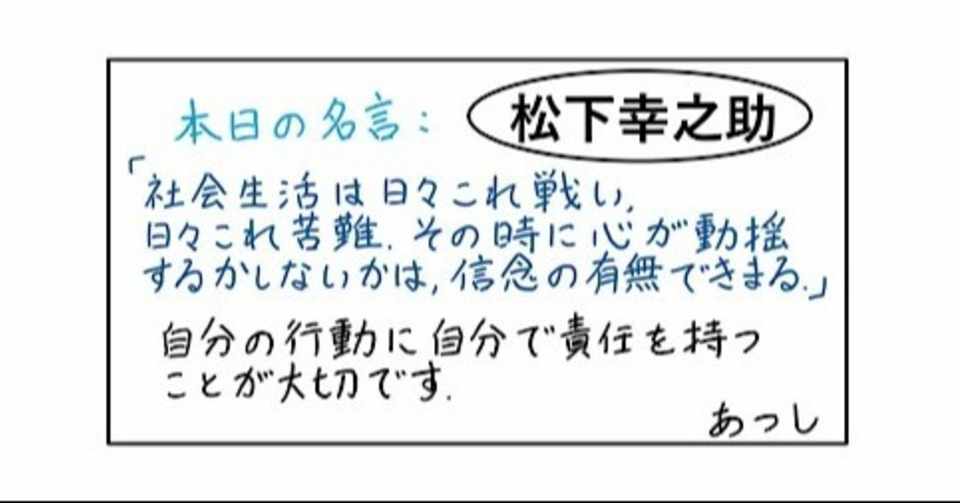 本日の名言: 松下幸之助
「社会生活は日々これ戦い,
日々これ苦難.その時に心が動揺
するかしないかは,信念の有無できまる.」
自分の行動に自分で責任を持つ
ことが大切です.
あつし